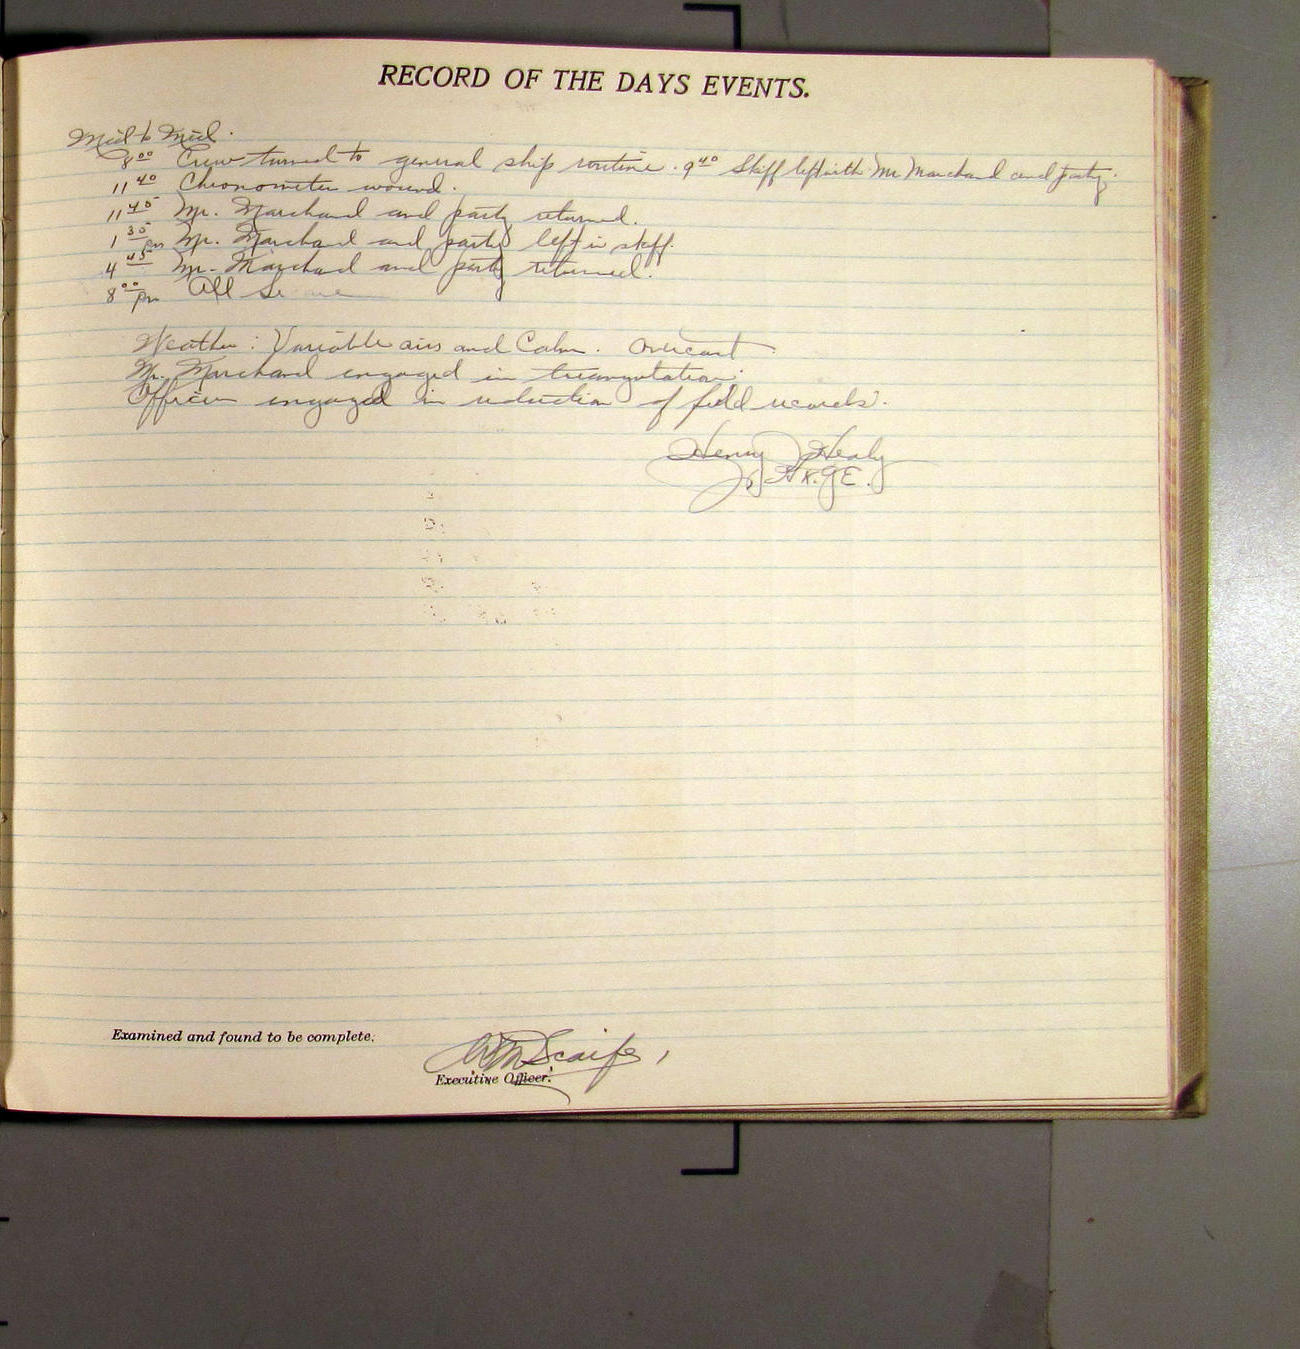 RECORD OF THE DAYS EVENTS.
Mid to Mid.
8⁰⁰ Crew turned to general ship routine. 9⁴⁰ Skiff left with Mr Marchand and party.
11⁴⁰ Chronometer wound.
11⁴⁵ Mr. Marchand and party returned.
1³⁰ pm Mr. Marchand and party left in skiff.
4⁴⁵ Mr. Marchand and party returned.
8⁰⁰ pm All
Weather: Variable airs and Calm. Overcast
Mr. Marchand engaged in triangulation.
Officers engaged in reduction of field records.
Henry J. Healy
Jr. H. & G. E.
Examined and found to be complete.
Scaife,
Executive Officer.